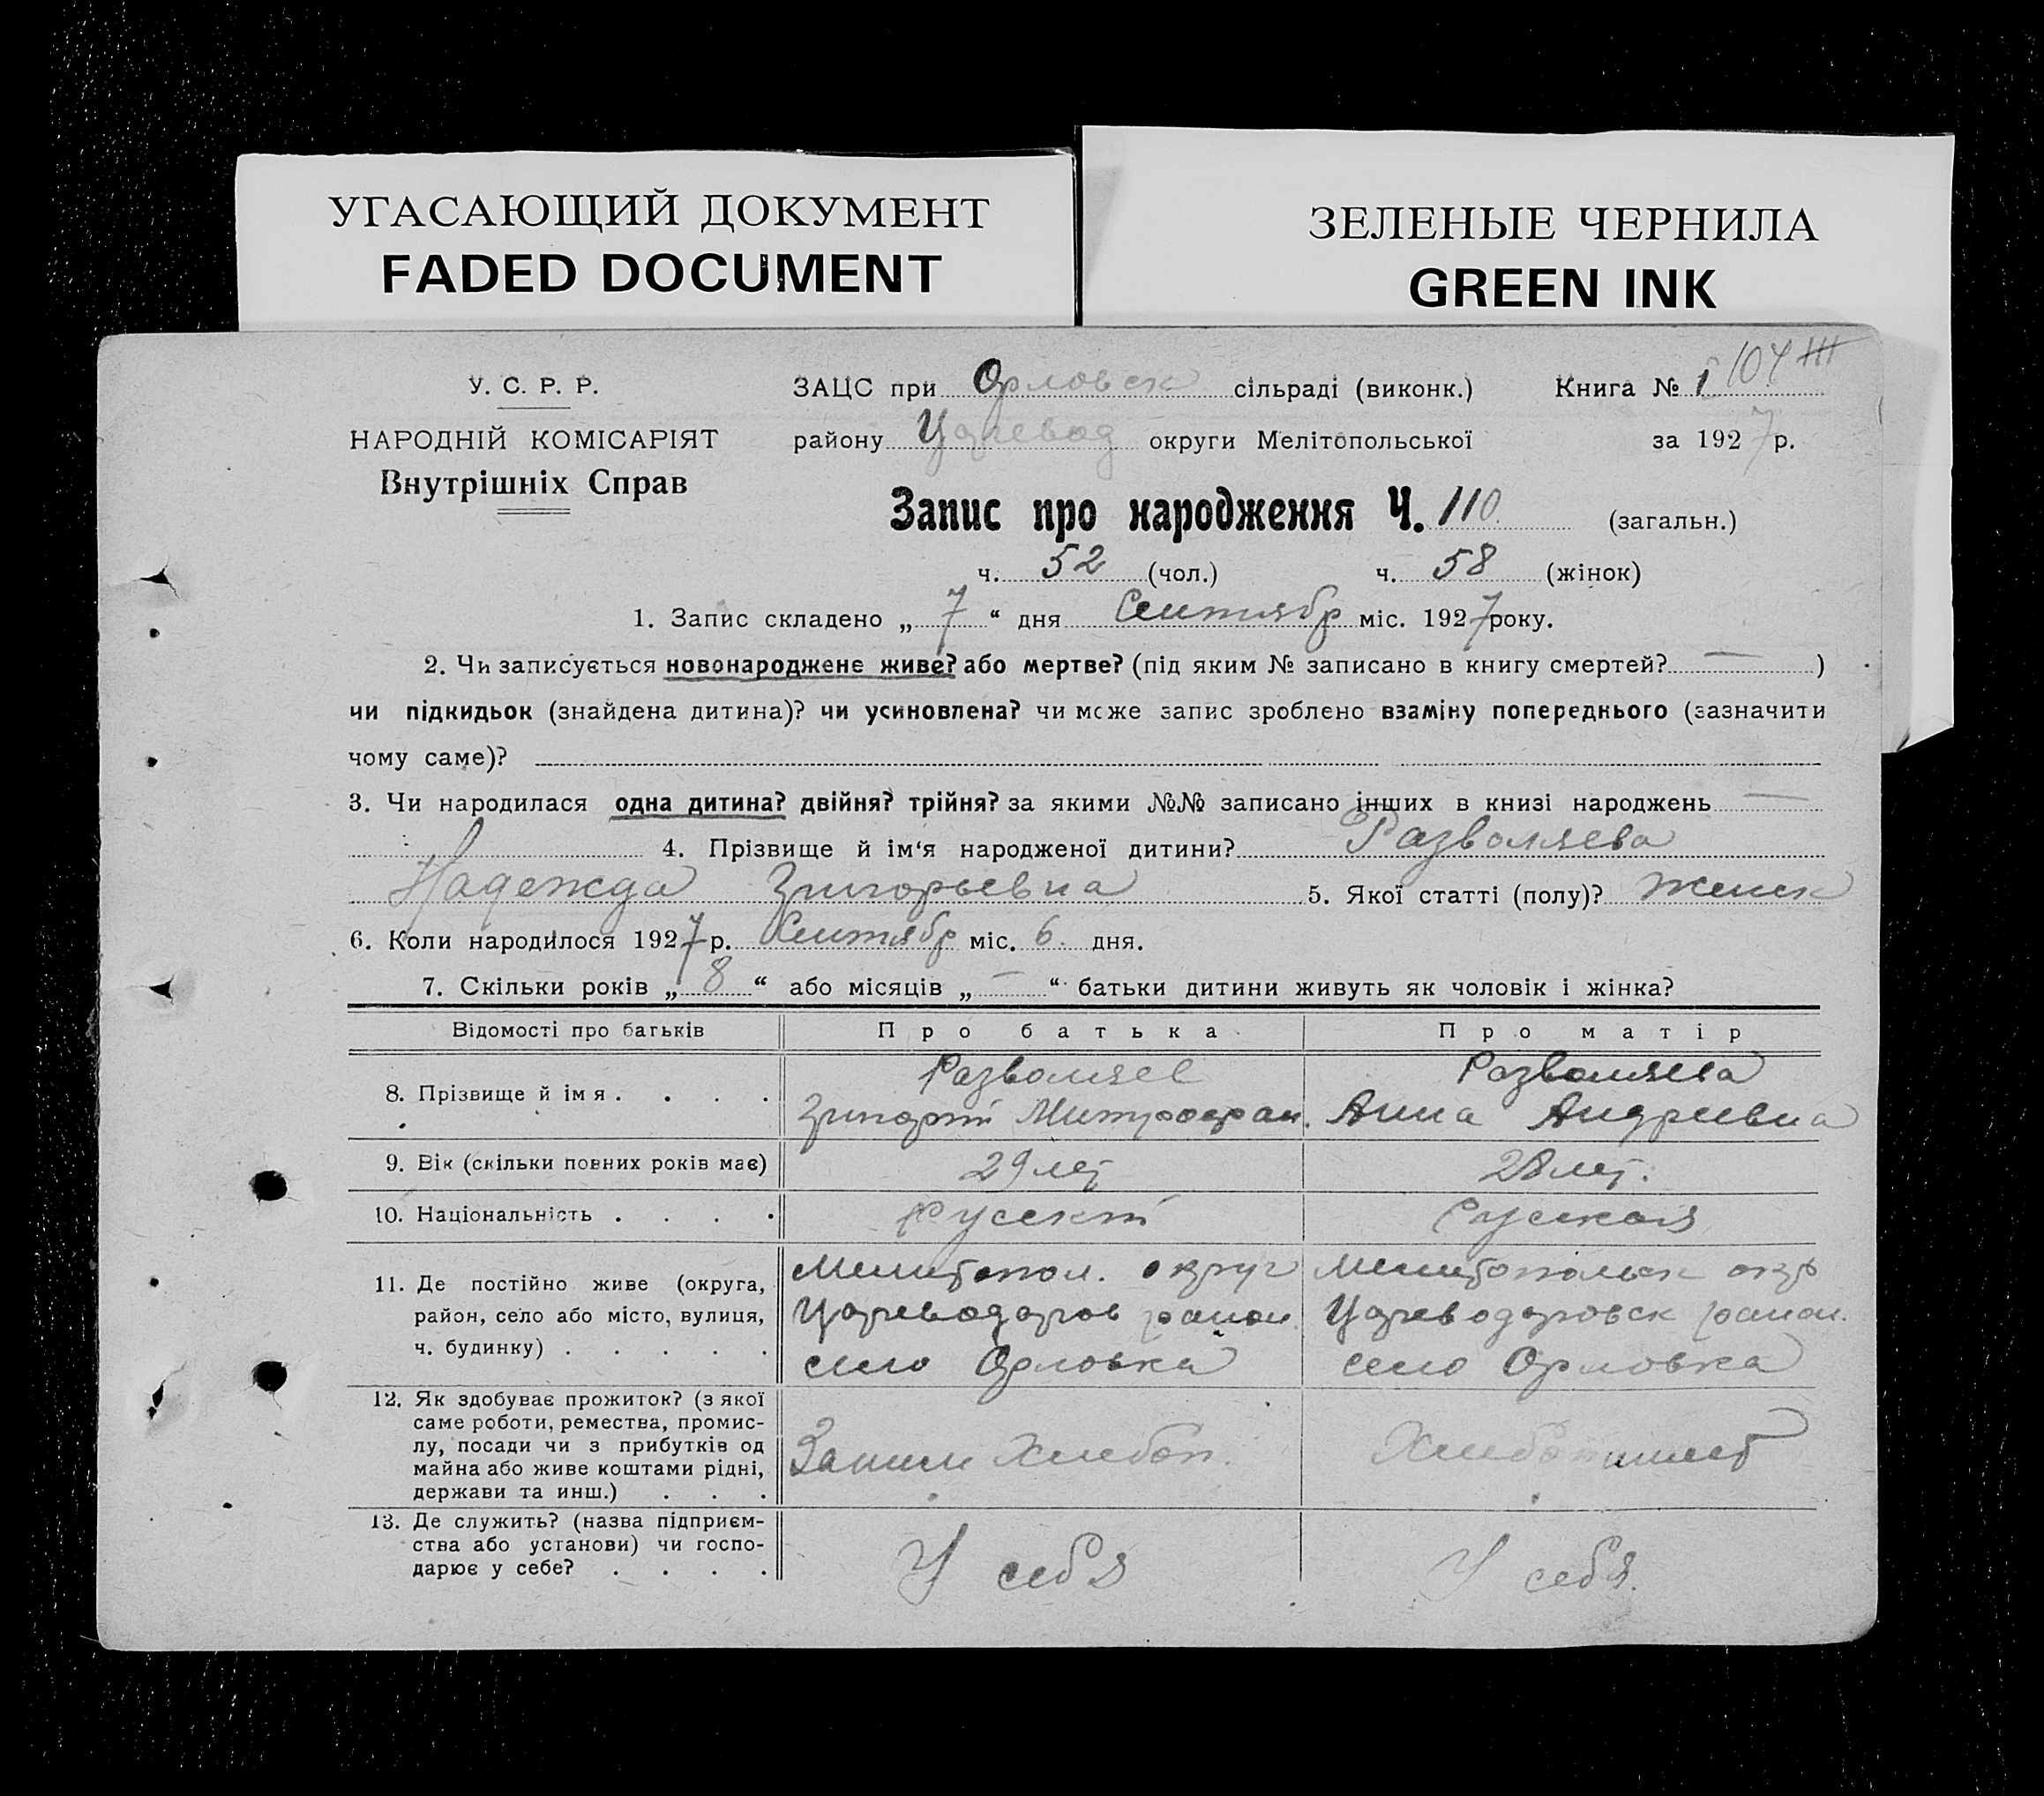 УГАСАЮЩИЙ ДОКУМЕНТ
FADED DOCUMENT
ЗЕЛЕНЫЕ ЧЕРНИЛА
GREEN INK
У. С. Р. Р.
НАРОДНІЙ КОМІСАРІЯТ
Внутрішніх Справ
ЗАЦС при Орловск сільраді (виконк.) Книга №
району Царевод округи Мелітопольської за 1927 р.
Запис про народження Ч. 110 (загальн.)
ч. 52 (чол.) ч. 58 (жінок)
1. Запис складено „ 7 “ дня Сентябр міс. 1927 року.
2. Чи записується новонароджене живе? або мертве? (під яким № записано в книгу смертей? — )
чи підкидьок (знайдена дитина)? чи усиновлена? чи може запис зроблено взаміну попереднього (зазначити
чому саме)?
3. Чи народилася одна дитина? двійня? трійня? за якими №№ записано інших в книзі народжень —
4. Прізвище й ім‘я народженої дитини? Разволяева
Надежда Григорьевна 5. Якої статті (полу)? женск
6. Коли народилося 1927 р. Сентябр міс. 6 дня.
7. Скільки років „ 8 “ або місяців „ — “ батьки дитини живуть як чоловік і жінка?
Відомості про батьків Про батька Про матір
8. Прізвище й імя . . . .
Разволяев
Григорий Митрофан.
Разволяева
Анна Андреевна
9. Вік (скільки повних років має) 29 лет 28 лет.
10. Національність . . . . Русский Русская
11. Де постійно живе (округа,
район, село або місто, вулиця,
ч. будинку) . . . . .
Мелитопол. округ
Цареводаров район.
село Орловка
Мелитопольск окр
Цареводаровск район.
село Орловка
12. Як здобуває прожиток? (з якої
саме роботи, ремества, промис-
лу, посади чи з прибутків од
майна або живе коштами рідні,
держави та инш.) . . .
Хлебоп.
13. Де служить? (назва підприєм-
ства або установи) чи госпо-
дарює у себе? . . . .
У себя
У себя.